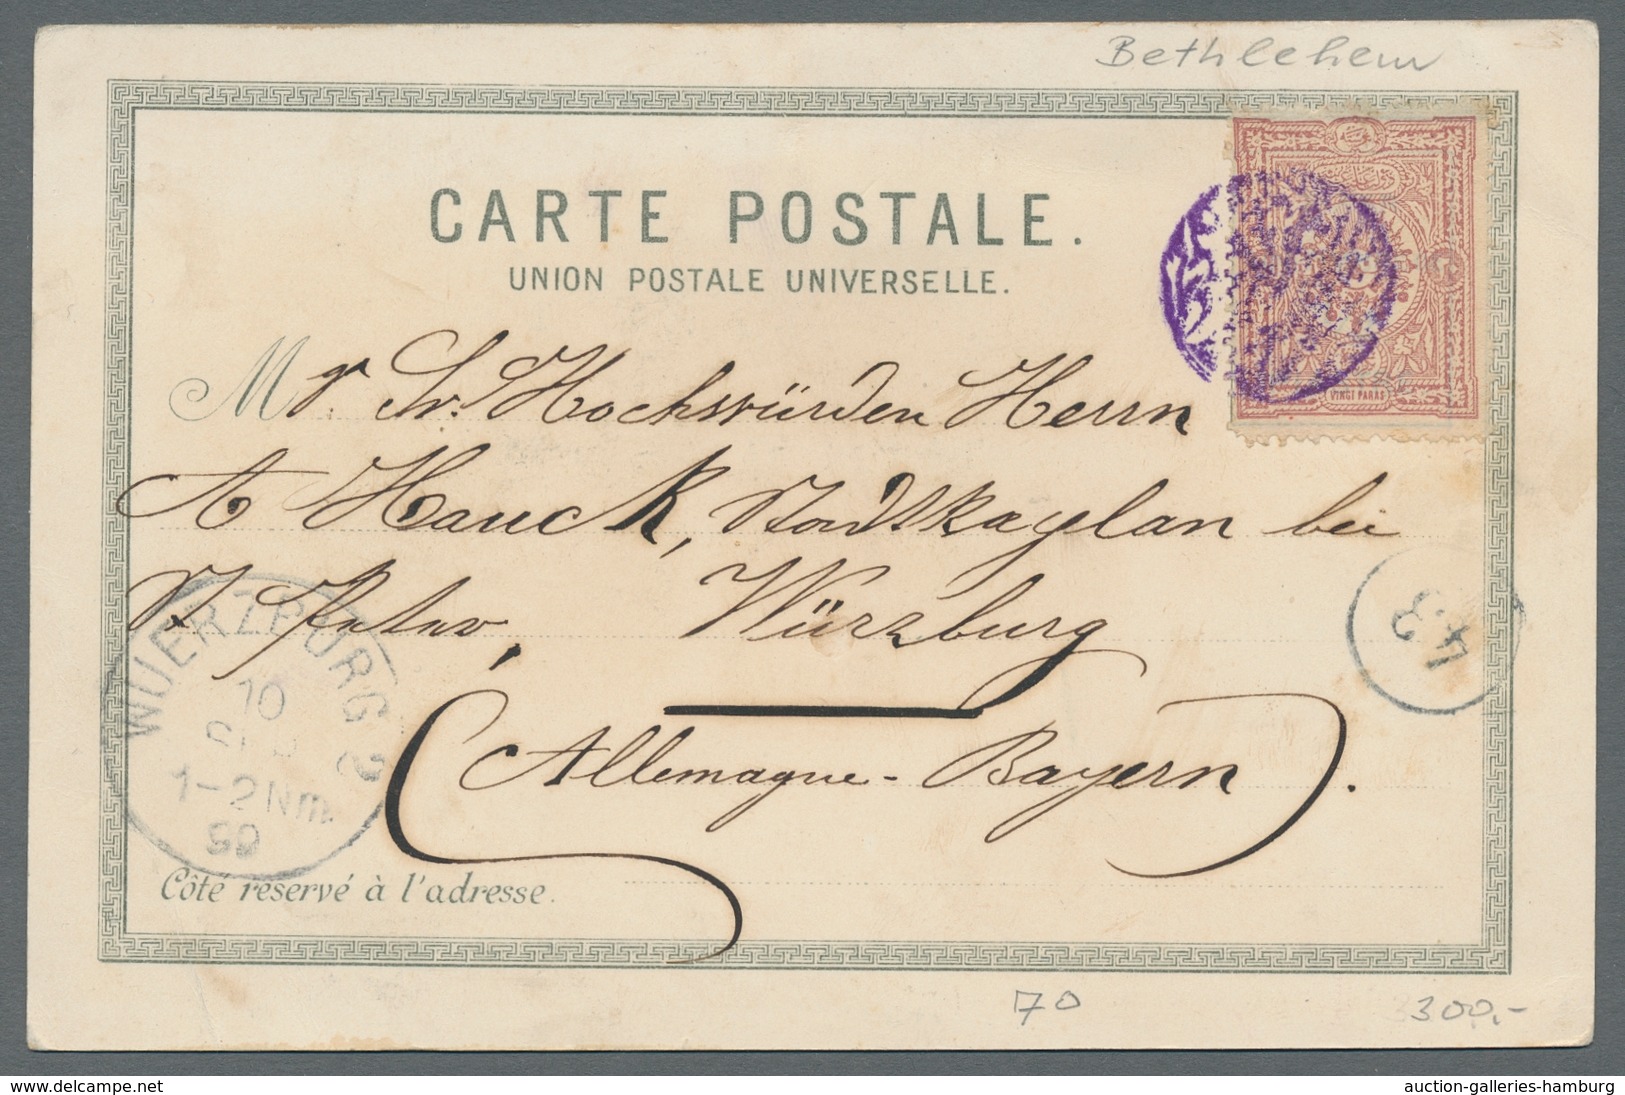 Bethlehem
CARTE POSTALE.
UNION POSTALE UNIVERSELLE.
VINGT PARAS
Mr. Sr. Hochwürden Herrn
A Hauck, Stadtkaplan bei
St Peter, Würzburg
(Allemagne - Bayern).
WUERZBURG 2
10
SEP
1-2Nm.
99
Côté réservé à l'adresse.
70
300,-
delcampe.net
auction-galleries-hamburg